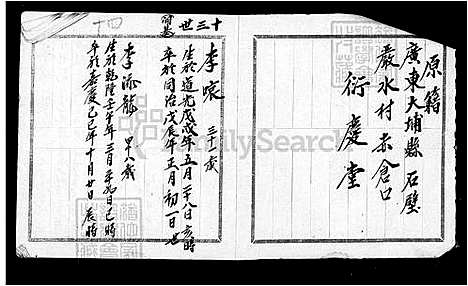 原籍
廣東大埔縣石壁
嚴水村赤倉口
衍慶堂
十三世
李 三十一歲
生於道光戊戌年五月二十八日亥時
卒於同治戊辰年正月初一日
李添龍 四十八歲
生於乾隆壬午年三月 日巳時
卒於嘉慶己巳年十月廿日辰時
十四
FamilySearch